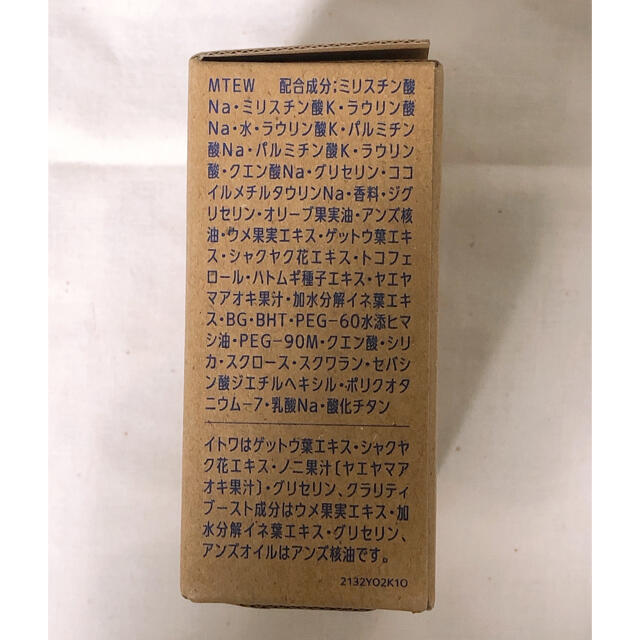 MTEW　配合成分;ミリスチン酸
Na・ミリスチン酸K・ラウリン酸
Na・水・ラウリン酸K・パルミチン
酸Na・パルミチン酸K・ラウリン
酸・クエン酸Na・グリセリン・ココ
イルメチルタウリンNa・香料・ジグ
リセリン・オリーブ果実油・アンズ核
油・ウメ果実エキス・ゲットウ葉エキ
ス・シャクヤク花エキス・トコフェ
ロール・ハトムギ種子エキス・ヤエヤ
マアオキ果汁・加水分解イネ葉エキ
ス・BG・BHT・PEG-60水添ヒマ
シ油・PEG-90M・クエン酸・シリ
カ・スクロース・スクワラン・セバシ
ン酸ジエチルヘキシル・ポリクオタ
ニウム-7・乳酸Na・酸化チタン
イトワはゲットウ葉エキス・シャクヤ
ク花エキス・ノニ果汁〔ヤエヤマア
オキ果汁〕・グリセリン、クラリティ
ブースト成分はウメ果実エキス・加
水分解イネ葉エキス・グリセリン、
アンズオイルはアンズ核油です。
2132Y02K10